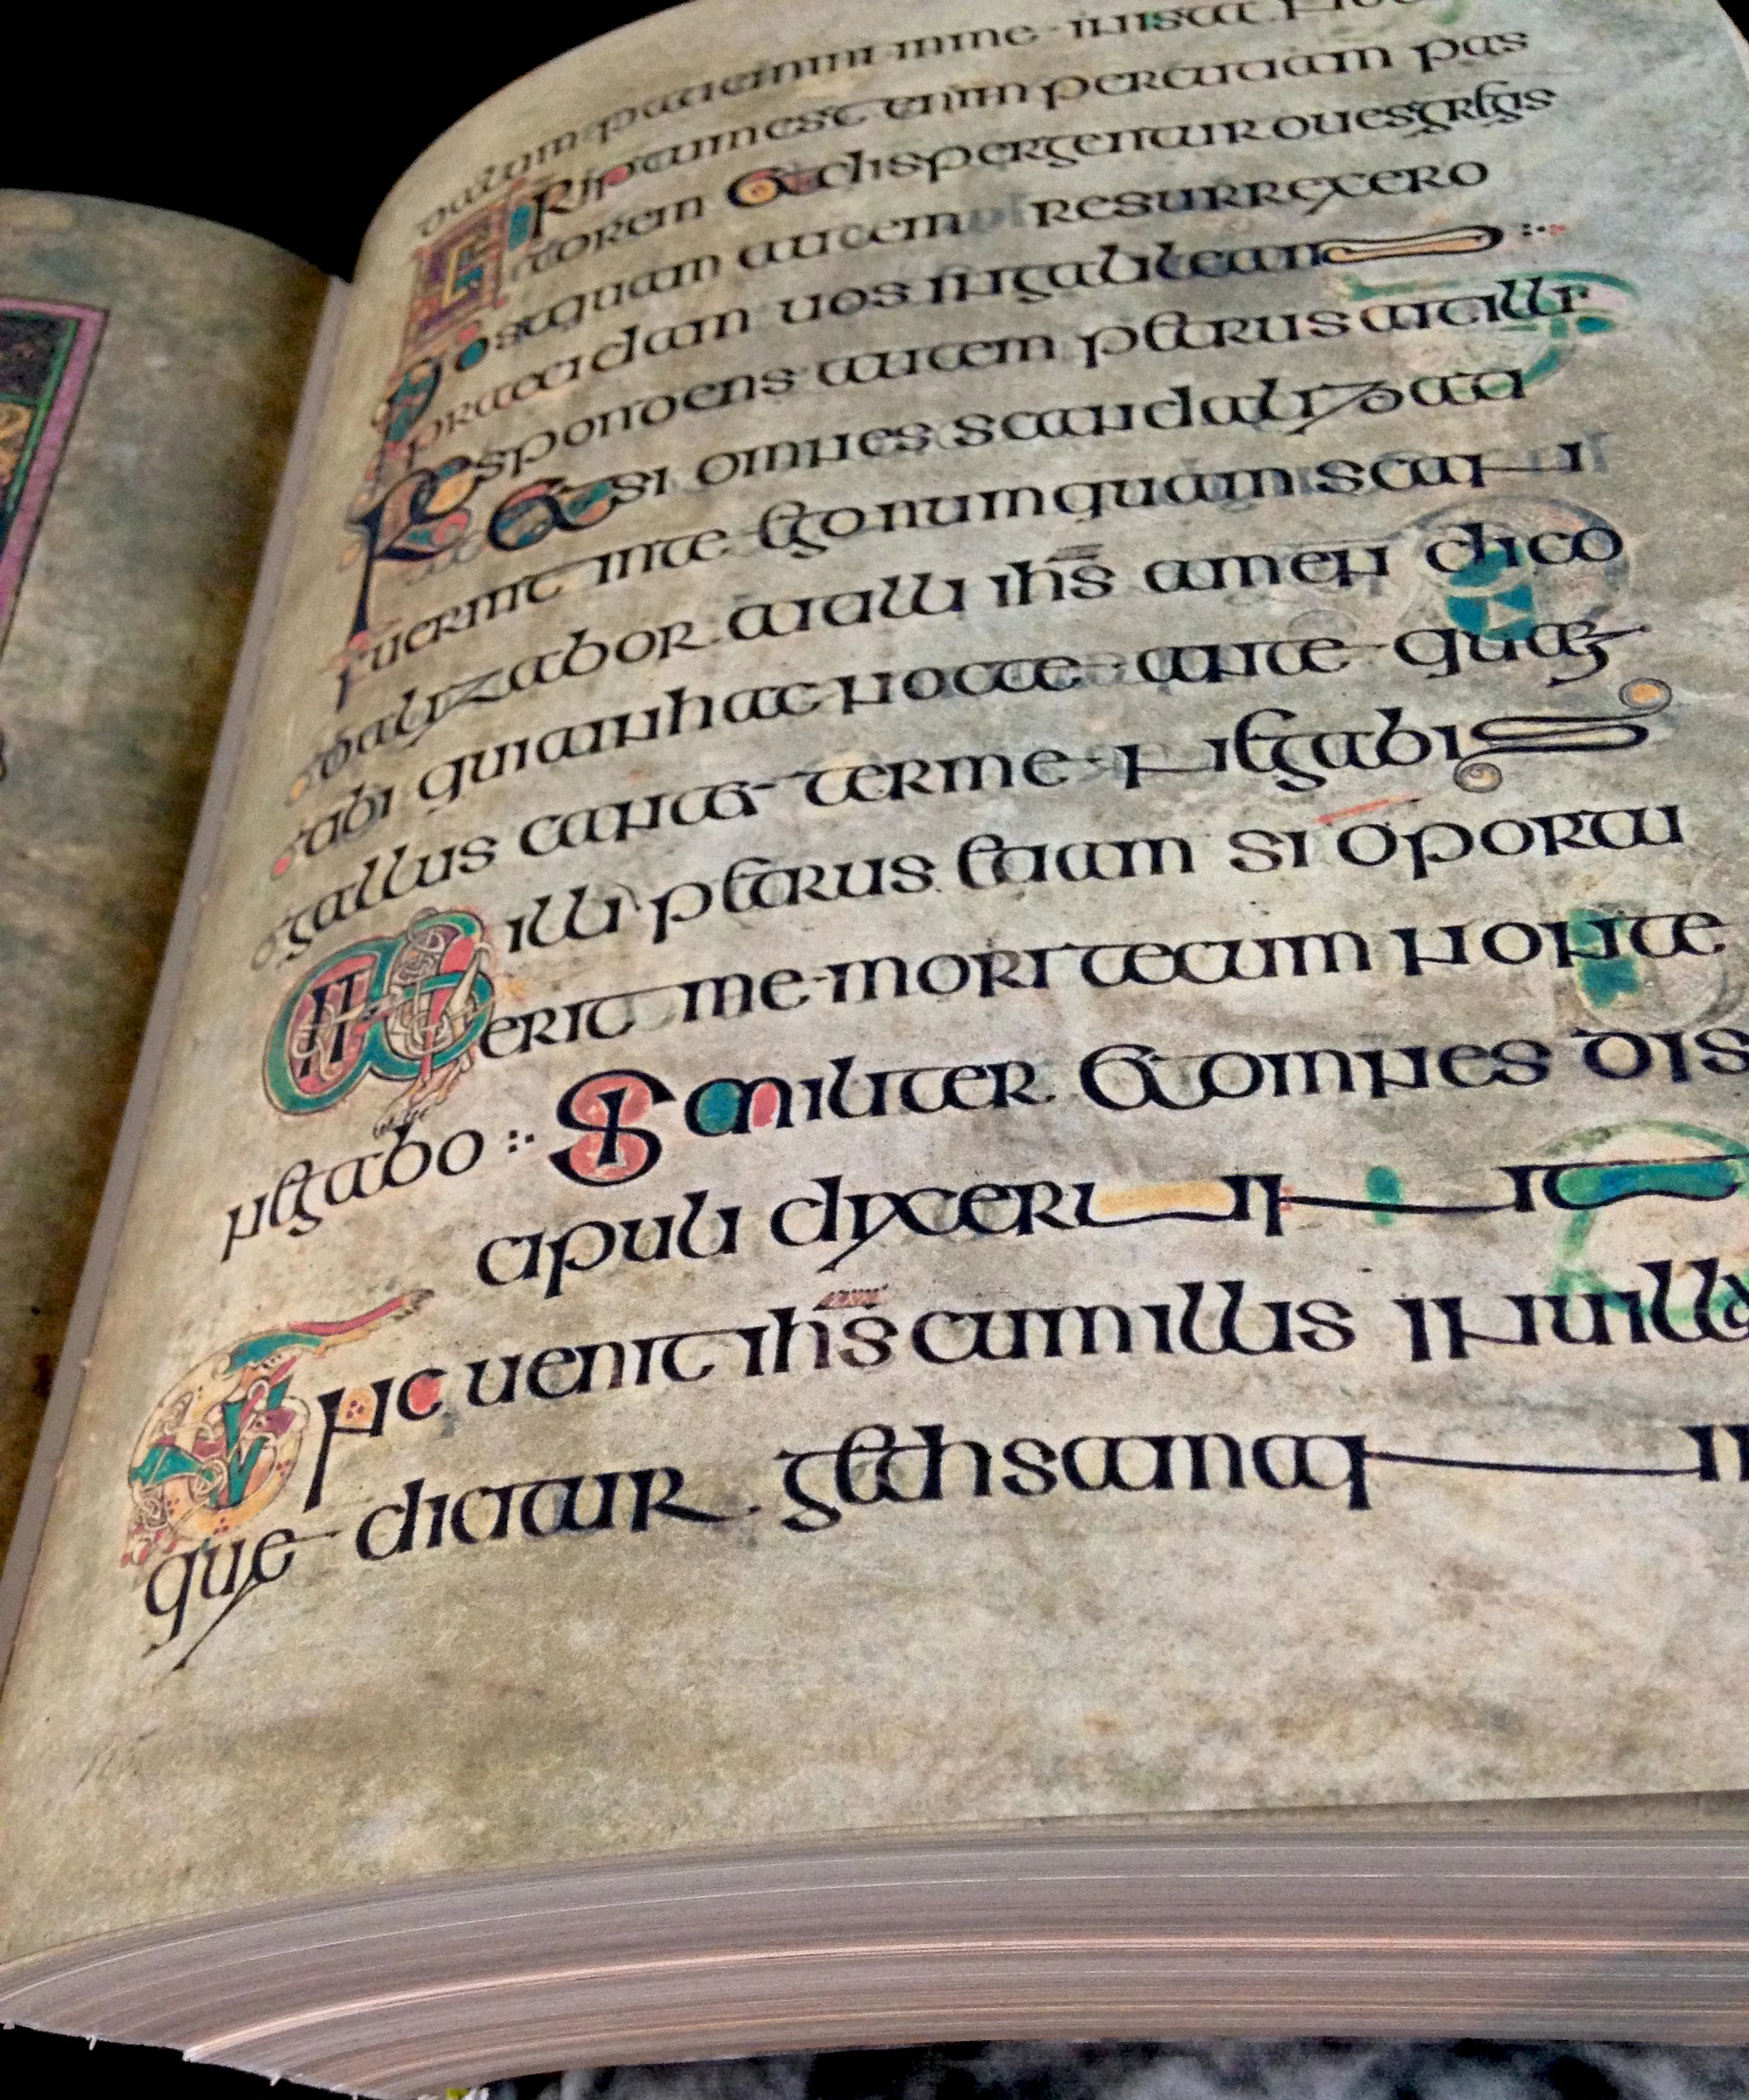 dalum patiemini in me in ista
Scriptum est enim percutiam pas
torem et dispergentur oues gregis
Postquam autem resurrexero
praecedam uos in galileam
Respondens autem petrus ait illi
Et si omnes scandalizati
fuerint in te ego numquam scan
dalizabor ait illi ihs amen dico
tibi quia in hac nocte ante quam
gallus cantet ter me negabis
Ait illi petrus etiam si oportu
erit me mori tecum non te
negabo :· Similiter et omnes dis
cipuli dixerunt
Tunc uenit ihs cum illis in uilla
que dicitur gethsamani